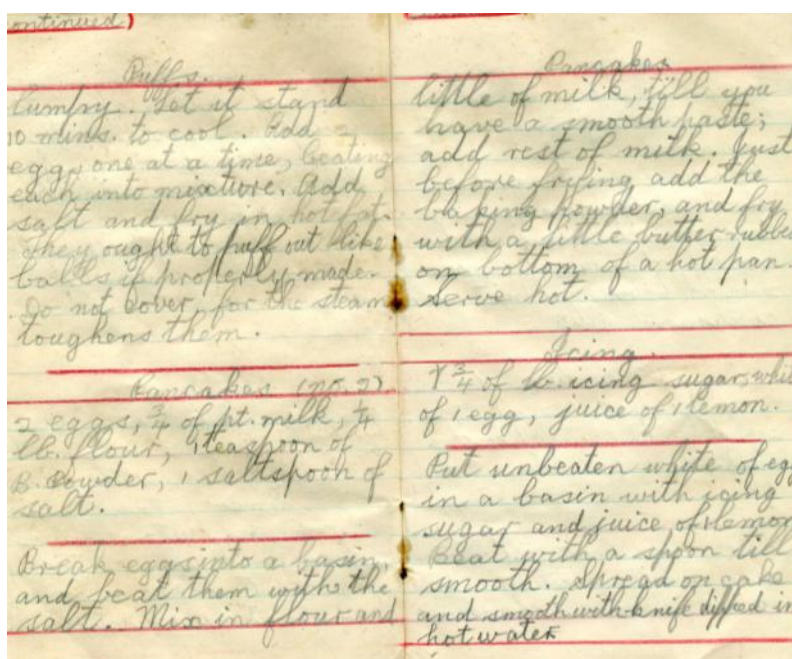 ontinued)
Puffs.
lumpy. Let it stand
10 mins. to cool. Add 2
eggs, one at a time, beating
each into mixture. Add
salt and fry in hot fat.
They ought to puff out like
balls if properly made.
Do not cover, for the steam
toughens them.
Pancakes (no. 2)
2 eggs, 3/4 of pt. milk, 1/4
lb. flour, 1 teaspoon of
B. Powder, 1 saltspoon of
salt.
Break eggs into a basin,
and beat them with the
salt. Mix in flour and
Pancakes
little of milk, till you
have a smooth paste;
add rest of milk. Just
before frying add the
baking powder, and fry
with a little butter rubbed
on bottom of a hot pan.
Serve hot.
Icing.
3/4 of lb. icing sugar, white
of 1 egg, juice of 1 lemon.
Put unbeaten white of egg
in a basin with icing
sugar and juice of 1 lemon
Beat with a spoon till
smooth. Spread on cake
and smooth with knife dipped in
hot water